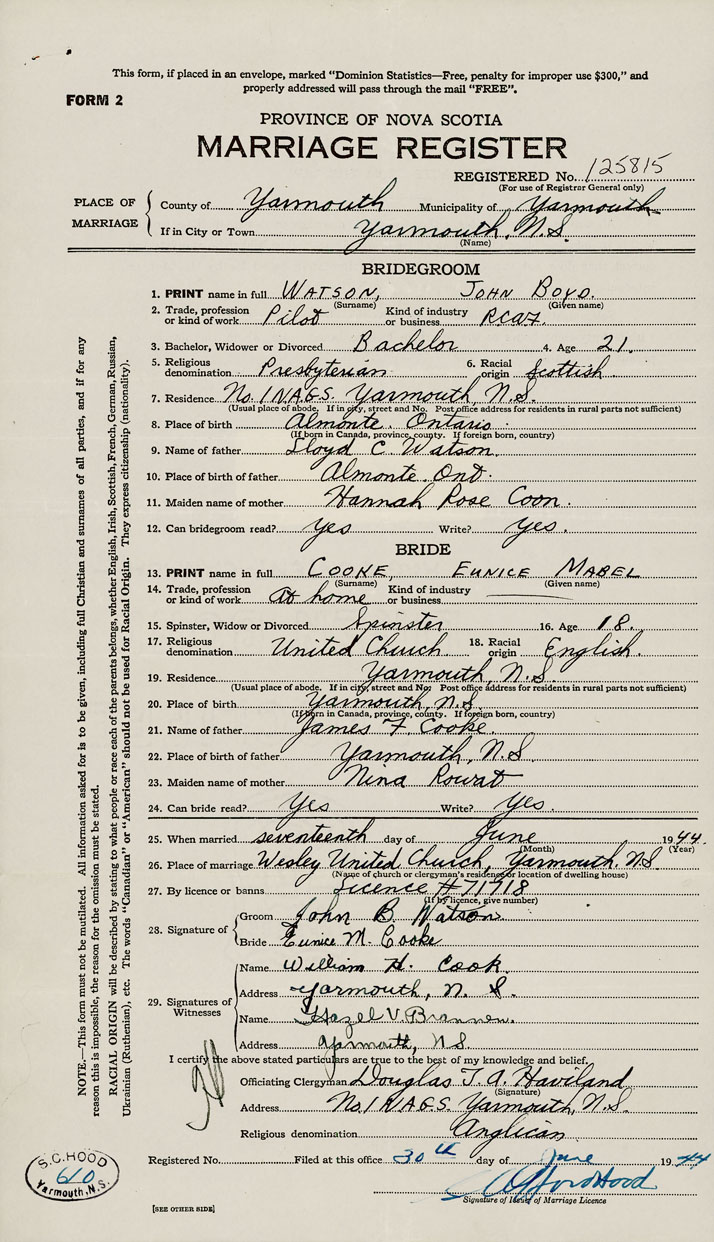 This form, if placed in an envelope, marked “Dominion Statistics—Free, penalty for improper use $300,” and
properly addressed will pass through the mail “FREE”.
FORM 2
PROVINCE OF NOVA SCOTIA
MARRIAGE REGISTER
REGISTERED No. 125815
(For use of Registrar General only)
PLACE OF MARRIAGE
County of Yarmouth Municipality of Yarmouth
If in City or Town Yarmouth, N.S.
(Name)
BRIDEGROOM
1. PRINT name in full WATSON, JOHN BOYD.
(Surname) (Given name)
2. Trade, profession or kind of work Pilot Kind of industry or business RCAF.
3. Bachelor, Widower or Divorced Bachelor 4. Age 21.
5. Religious denomination Presbyterian 6. Racial origin Scottish
7. Residence No. 1 N.A.G.S. Yarmouth, N.S.
(Usual place of abode. If in city, street and No. Post office address for residents in rural parts not sufficient)
8. Place of birth Almonte, Ontario.
(If born in Canada, province, county. If foreign born, country)
9. Name of father Lloyd C. Watson.
10. Place of birth of father Almonte, Ont.
11. Maiden name of mother Hannah Rose Coon.
12. Can bridegroom read? Yes Write? Yes.
BRIDE
13. PRINT name in full COOKE, EUNICE MABEL
(Surname) (Given name)
14. Trade, profession or kind of work At home Kind of industry or business
15. Spinster, Widow or Divorced Spinster 16. Age 18.
17. Religious denomination United Church 18. Racial origin English.
19. Residence Yarmouth, N.S.
(Usual place of abode. If in city, street and No. Post office address for residents in rural parts not sufficient)
20. Place of birth Yarmouth, N.S.
(If born in Canada, province, county. If foreign born, country)
21. Name of father James F. Cooke.
22. Place of birth of father Yarmouth, N.S.
23. Maiden name of mother Nina Rowat
24. Can bride read? Yes Write? Yes.
25. When married seventeenth day of June 1944.
(Month) (Year)
26. Place of marriage Wesley United Church, Yarmouth. N.S.
(Name of church or clergyman's residence or location of dwelling house)
27. By licence or banns Licence #71718
(If by licence, give number)
28. Signature of
Groom John B. Watson
Bride Eunice M. Cooke
29. Signatures of Witnesses
Name William H. Cook.
Address Yarmouth, N.S.
Name Hazel V. Brannen.
Address Yarmouth, N.S.
I certify the above stated particulars are true to the best of my knowledge and belief.
Officiating Clergyman Douglas T. A. Haviland
(Signature)
Address No. 1 N.A.G.S. Yarmouth, N.S.
Religious denomination Anglican
Registered No. Filed at this office 30th day of June 1944
Signature of Issuer of Marriage Licence
[SEE OTHER SIDE]
S. C. HOOD
610
Yarmouth, N.S.
NOTE.—This form must not be mutilated. All information asked for is to be given, including full Christian and surnames of all parties, and if for any
reason this is impossible, the reason for the omission must be stated.
RACIAL ORIGIN will be described by stating to what people or race each of the parents belongs, whether English, Irish, Scottish, French, German, Russian,
Ukrainian (Ruthenian), etc. The words “Canadian” or “American” should not be used for Racial Origin. They express citizenship (nationality).